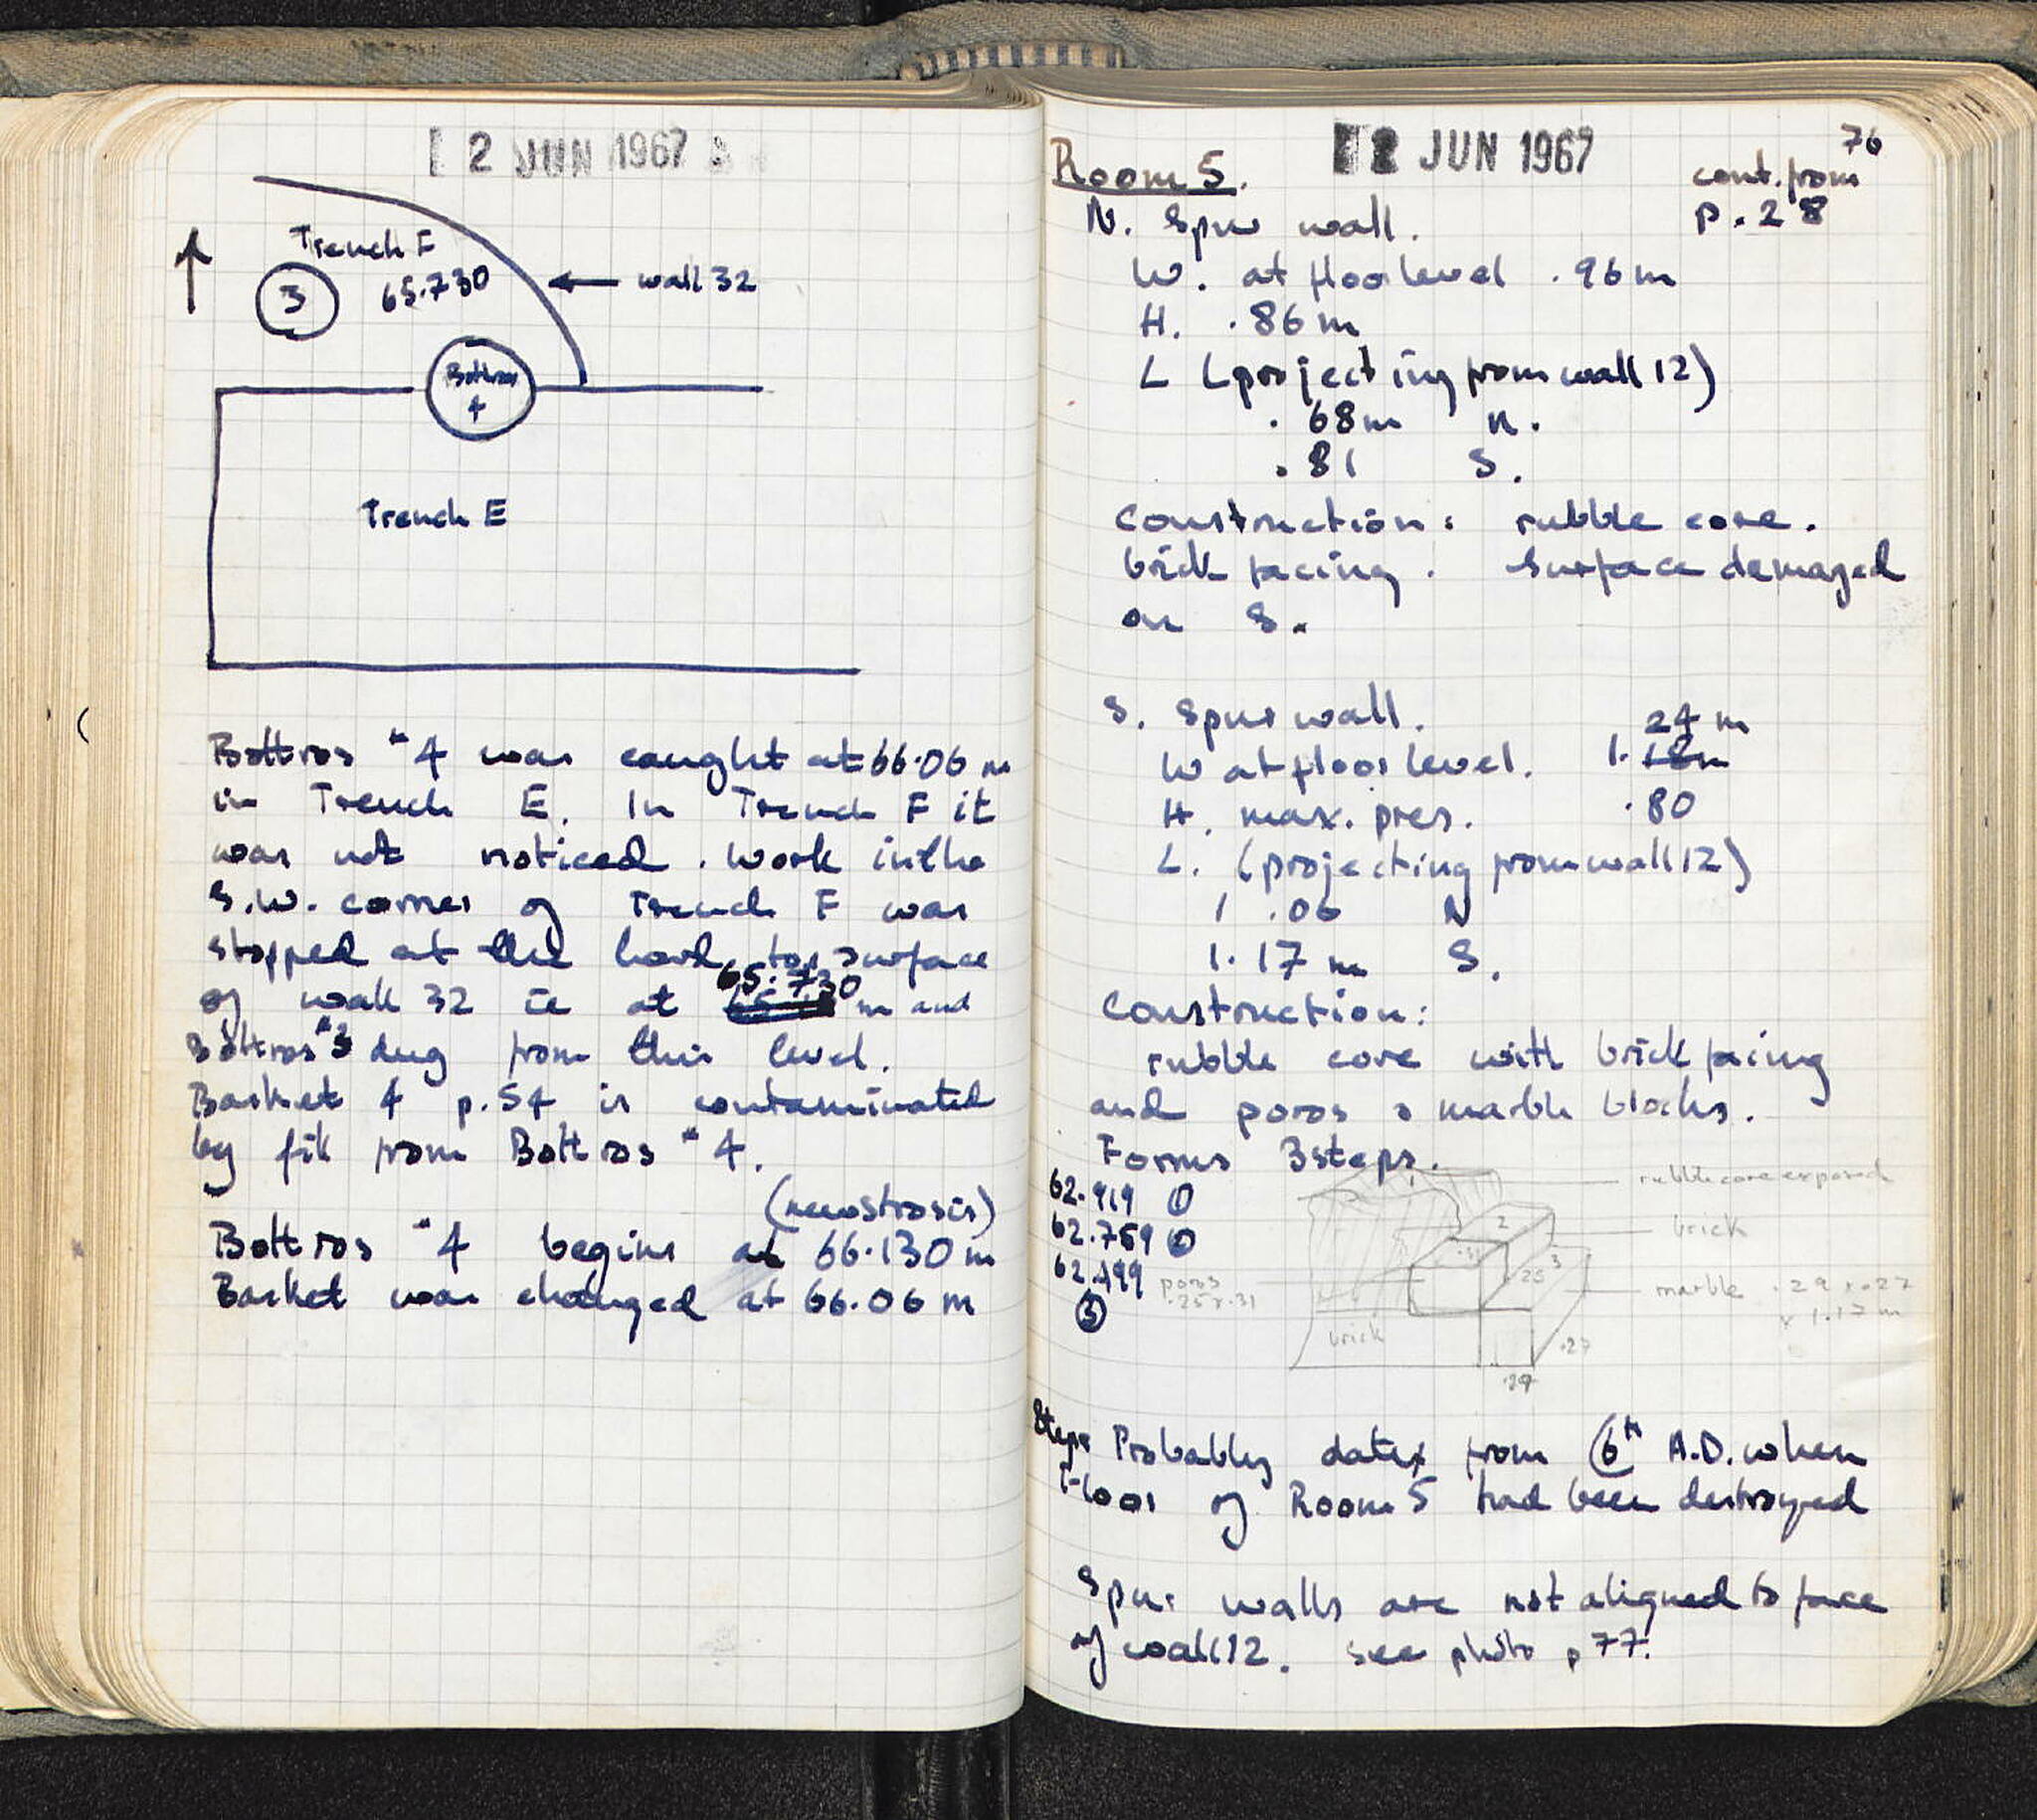 2 JUN 1967
Trench F
3
65.730
wall 32
Bothros
4
Trench E
Bothros #4 was caught at 66.06 m
in Trench E. In Trench F it
was not noticed. Work in the
S.W. corner of Trench F was
stopped at the hard top surface
of wall 32 ie at 65.730 m and
Bothros #3 dug from this level.
Basket 4 p.54 is contaminated
by fill from Bothros #4.
Bothros #4 begins at 66.130 m
Basket was changed at 66.06 m
76
2 JUN 1967
Room 5.
cont. from
p. 28
N. Spur wall.
W. at floor level .96m
H. .86m
L (projecting from wall 12)
.68m N.
.81 S.
Construction: rubble core.
brick facing. Surface damaged
on S.
S. Spur wall.
24 m
W at floor level. 1.18m
H. max. pres. .80
L. (projecting from wall 12)
1.06 N
1.17 m S.
Construction:
rubble core with brick facing
and poros & marble blocks.
Forms 3 steps.
62.919 ①
62.759 ②
62.499
③
rubble core exposed
brick
marble .29 x .27
x 1.17 m
poros
.25 x .31
2
.31
.25
3
brick
.27
.29
Steps Probably date from C 6th A.D. when
Floor of Room 5 had been destroyed
Spur walls are not aligned to face
of wall 12. see photo p 77.